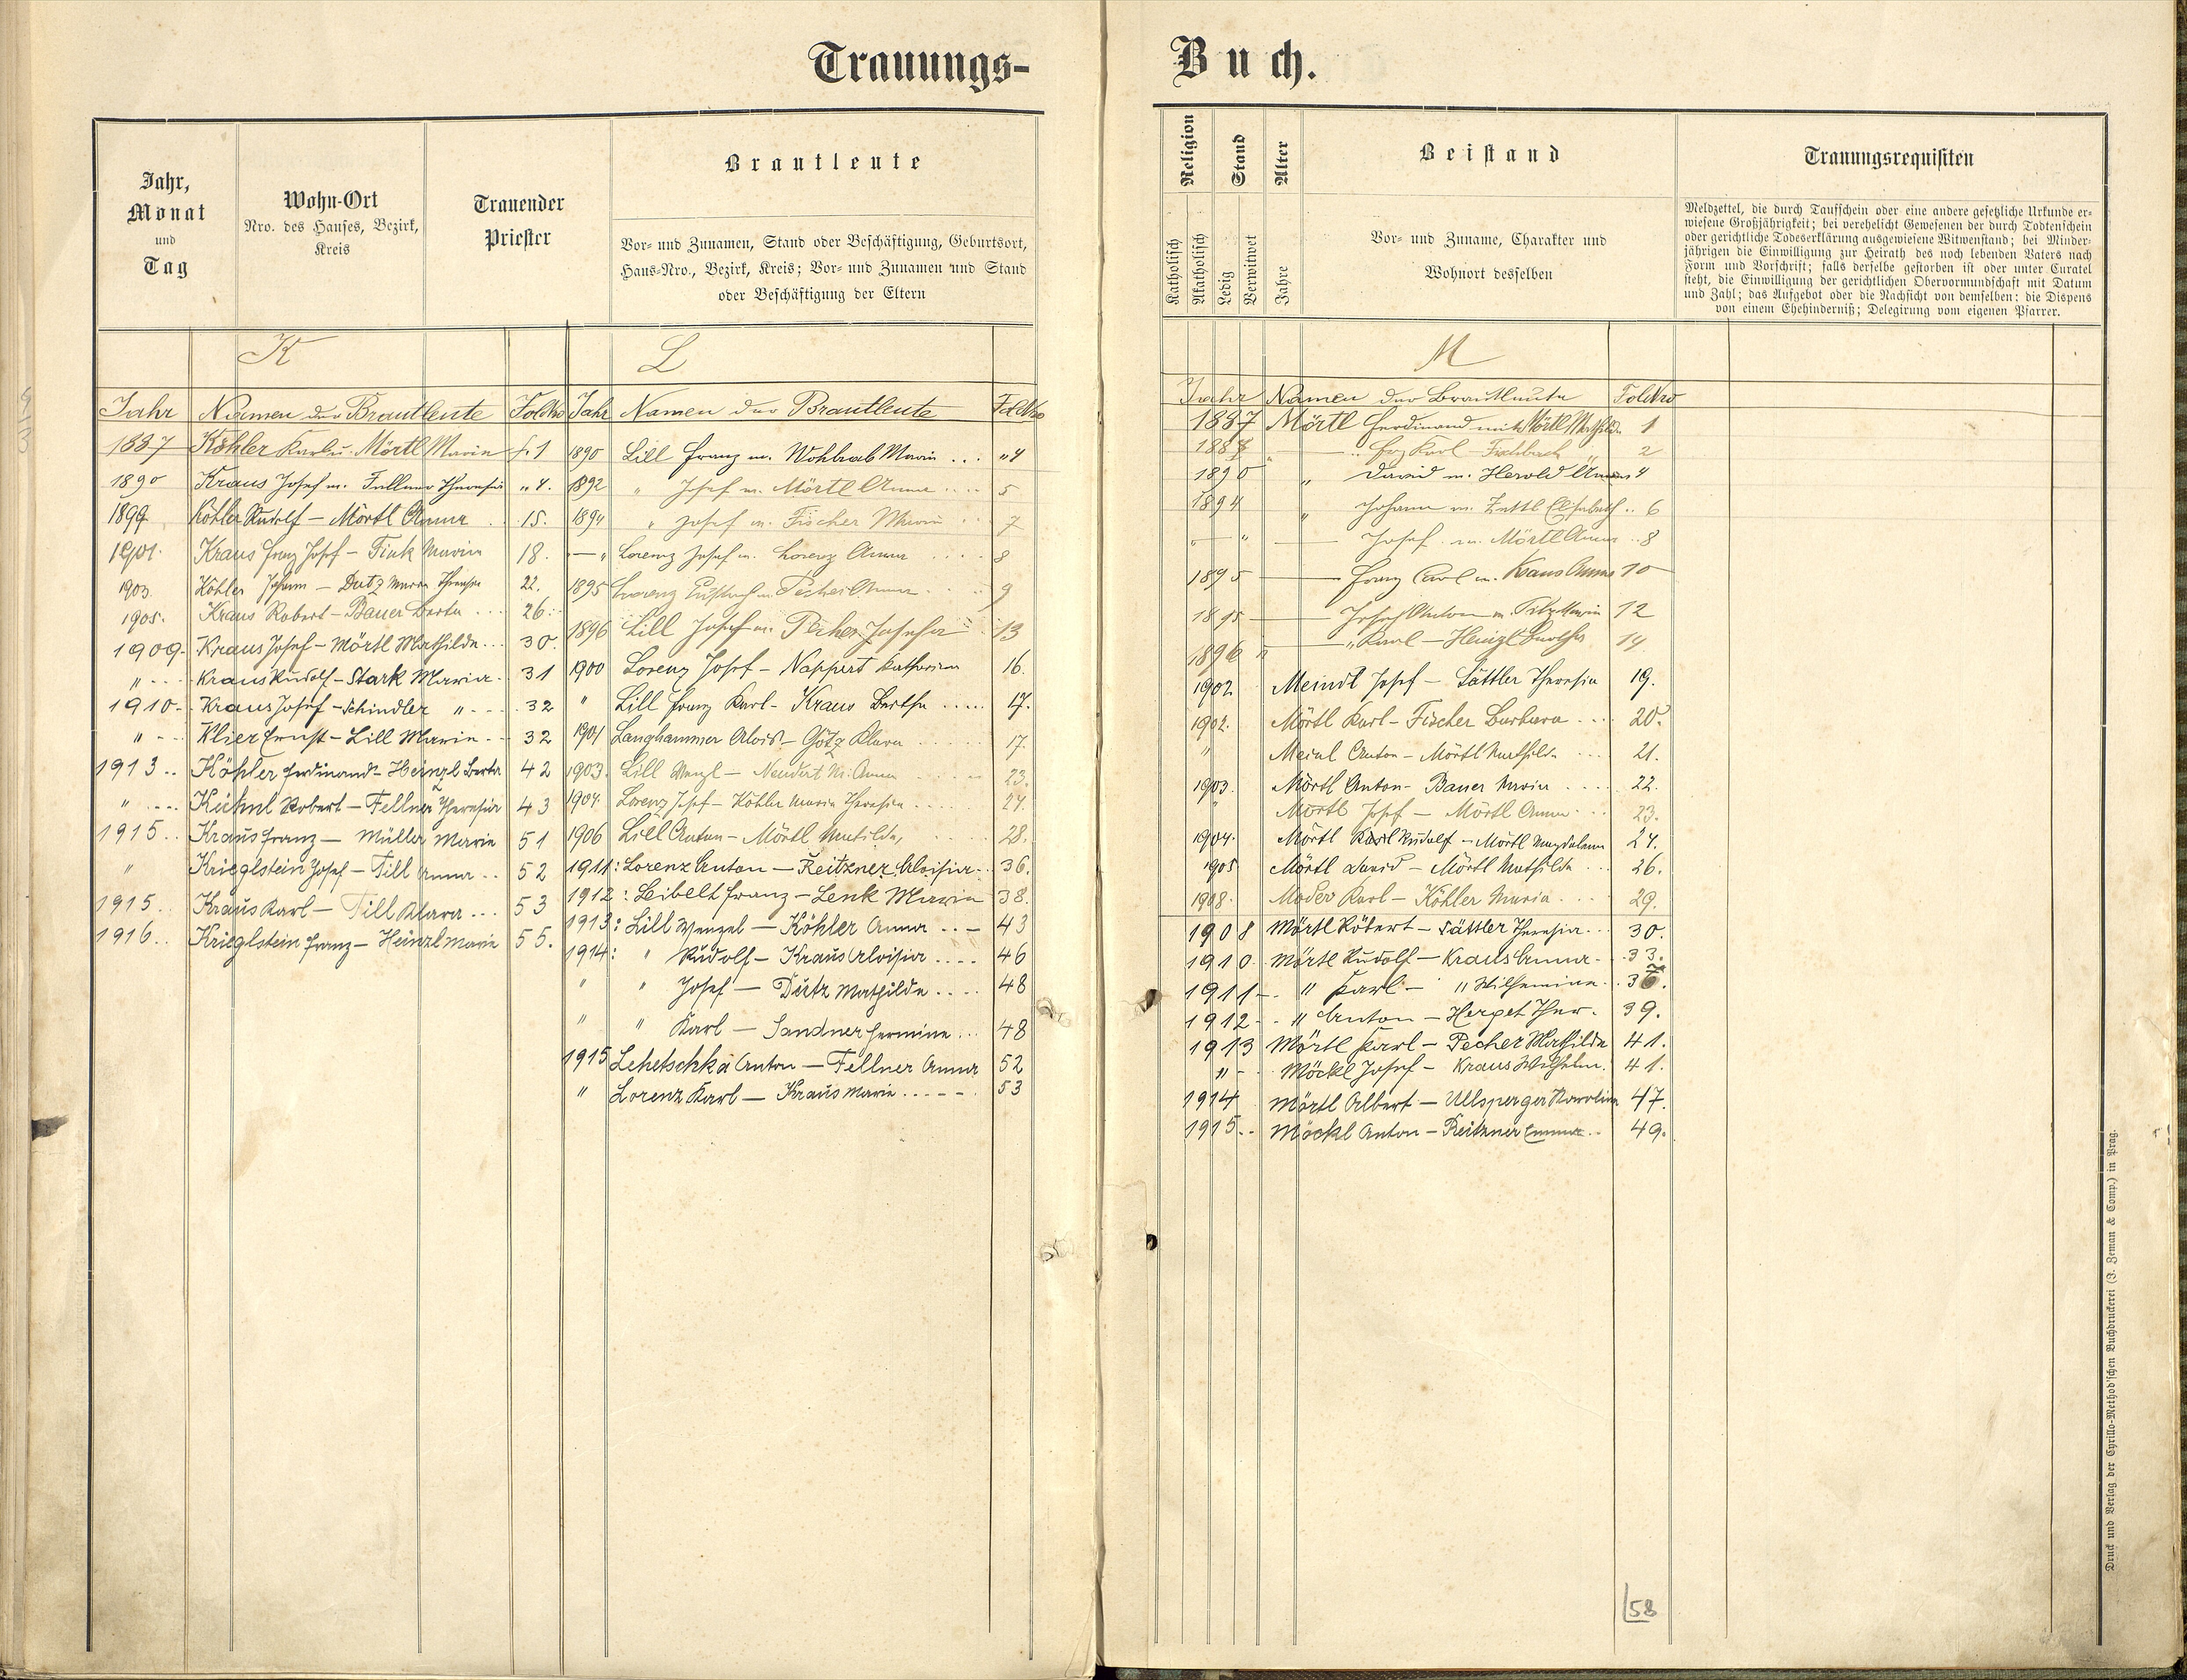 Trauungs-
Jahr,
Monat
und
Tag
Wohn-Ort
Nro. des Hauses, Bezirk,
Kreis
Trauender
Priester
Brautleute
Vor- und Zunamen, Stand oder Beschäftigung, Geburtsort,
Haus-Nro., Bezirk, Kreis; Vor- und Zunamen und Stand
oder Beschäftigung der Eltern
K
Jahr Namen der Brautleute FolNro
1887 Köhler Karl u. Mörtl Marie f. 1
1890 Kraus Josef m. Fellner Theresia „ 4.
1899 Köhler Rudolf – Mörtl Anna . 15.
1901. Kraus Franz Josef – Fink Maria 18.
1903. Köhler Johann – Dutz Maria Theresia 22.
1905. Kraus Robert – Bauer Berta ... 26.
1909. Kraus Josef – Mörtl Mathilde... 30.
„ - - - Kraus Rudolf – Stark Maria. 31
1910 - Kraus Josef – Schindler „ - - - 32
„ - - Klier Ernst – Lill Marie - - 32
1913 .. Köhler Ferdinand – Heinzl Berta 42
„ - - - Kühnl Robert – Fellner Theresia 43
1915 .. Kraus Franz – Müller Marie 51
„ Krieglstein Josef – Till Anna .. 52
1915.. Kraus Karl – Till Klara ... 53
1916.. Krieglstein Franz – Heinzl Marie 55.
L
Jahr Namen der Brautleute FolNro
1890 Lill Franz m. Wohlrab Marie ... „ 4
1892 „ Josef m. Mörtl Anna .... 5
1894 „ Josef m. Fischer Marie .. 7
— „ Lorenz Josef m. Lorenz Anna .... 8
1895 Lorenz Eustach m. Pecher Anna .. 9
1896 Lill Josef m. Pecher Josefa .. 13
1900 Lorenz Josef – Nappert Katharina 16.
„ Lill Franz Karl – Kraus Bertha ..... 17.
1901 Langhammer Alois – Götz Klara ...... 17.
1903. Lill Wenzl – Neudert M. Anna .... 23.
1904. Lorenz Josef – Köhler Maria Theresia .... 24.
1906 Lill Anton – Mörtl Matilda, 28.
1911: Lorenz Anton – Reitzner Aloisia.. 36.
1912: Leibelt Franz – Lenk Maria 38.
1913: Lill Wenzel – Köhler Anna .. - 43
1914: „ Rudolf – Kraus Aloisia .... 46
„ „ Josef – Dutz Mathilde .... 48
„ „ Karl – Sandner Hermine ... 48
1915 Lehetschka Anton – Fellner Anna 52
„ Lorenz Karl – Kraus Marie ..... 53
Buch.
Religion
Katholisch
Akatholisch
Stand
Ledig
Verwitwet
Alter
Jahre
Beistand
Vor- und Zuname, Charakter und
Wohnort desselben
Trauungsrequisiten
Meldzettel, die durch Taufschein oder eine andere gesetzliche Urkunde er-
wiesene Großjährigkeit; bei verehelicht Gewesenen der durch Todtenschein
oder gerichtliche Todeserklärung ausgewiesene Witwenstand; bei Minder-
jährigen die Einwilligung zur Heirath des noch lebenden Vaters nach
Form und Vorschrift; falls derselbe gestorben ist oder unter Curatel
steht, die Einwilligung der gerichtlichen Obervormundschaft mit Datum
und Zahl; das Aufgebot oder die Nachsicht von demselben; die Dispens
von einem Ehehinderniß; Delegirung vom eigenen Pfarrer.
M
Jahr Namen der Brautleute FolNro
1887 Mörtl Ferdinand mit Mörtl Mathilde 1
188 „ Karl 2
1890 „ David m. Herold Anna 4
1894 „ Johann m. Zettl Elisabeth .. 6
„ — „ — Josef m. Mörtl Anna .. 8
1895 — Franz Carl m. Kraus Anna 10
1895 — Josef Anton m. Marie 12
1896 „ — „ Karl – Heinzl 14
1902. Meindl Josef – Sättler Theresia 19.
1902. Mörtl Karl – Fischer Barbara .... 20.
„ Meinl Anton – Mörtl Mathilde .... 21.
1903. Mörtl Anton – Bauer Maria ..... 22.
„ Mörtl Josef – Mörtl Anna .... 23.
1904. Mörtl Karl Rudolf – Mörtl Magdalena 24.
1905 Mörtl David – Mörtl Mathilde ... 26.
1908. Moder Karl – Köhler Maria ..... 29.
1908 Mörtl Robert – Sättler Theresia ... 30.
1910. Mörtl Rudolf – Kraus Anna - - 33.
1911 - „ Karl – „ Wilhemine . . 36.
1912 - „ Anton – Herget Ther. 39.
1913 Mörtl Karl – Pecher Mathilde 41.
„ - - Möckl Josef – Kraus Wilhelm. 41.
1914 Mörtl Albert – Ullsperger Karolina 47.
1915.. Möckl Anton – Reitzner Emma .. 49.
58
Druck und Verlag der Cyrillo-Method'schen Buchdruckerei (J. Zeman & Comp.) in Prag.